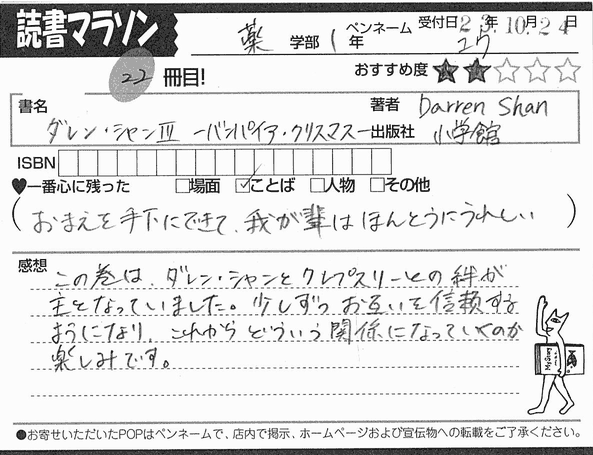 読書マラソン
薬 学部 1 年 ペンネーム ユウ 受付日 23年10月24日
22 冊目! おすすめ度 ★★☆☆☆
書名 著者 Darren Shan
ダレン・シャンⅢ －バンパイア・クリスマス－ 出版社 小学館
ISBN
♥一番心に残った □場面 ☑ことば □人物 □その他
(おまえを手下にできて、我が輩はほんとうにうれしい)
感想
この巻は、ダレン・シャンとクレプスリーとの絆が
主となっていました。少しずつお互いを信頼する
ようになり、これからどういう関係になっていくのか
楽しみです。
●お寄せいただいたPOPはペンネームで、店内で掲示、ホームページおよび宣伝物への転載をご了承ください。